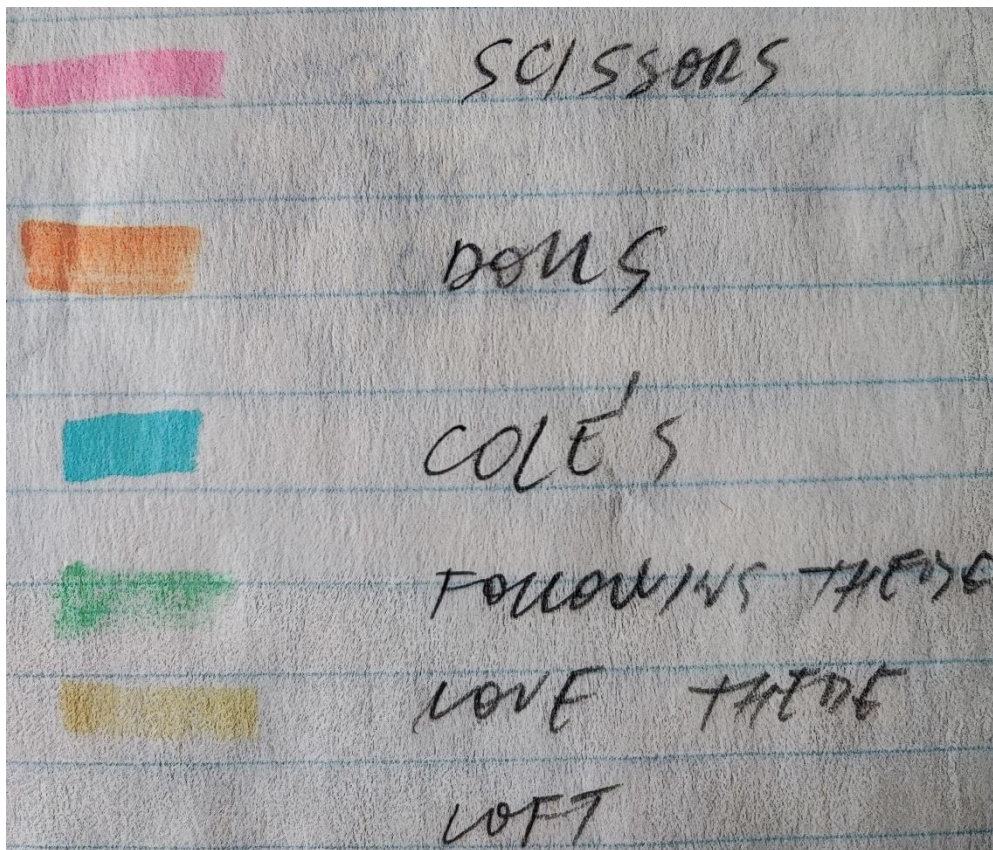 SCISSORS
DOLLS
COLE'S
FOLLOWING THEME
LOVE THEME
LOFT